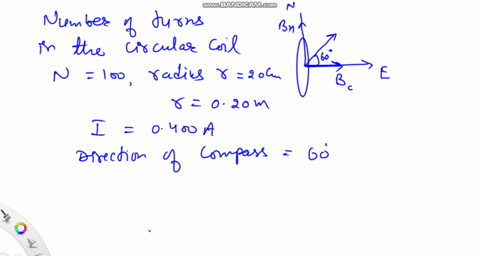 WWW.BANDICAM.COM
Number of turns
in the circular coil
N = 100, radius r = 20cm
r = 0.20m
I = 0.400A
Direction of Compass = 60°
N
B_H
60°
B_c
E